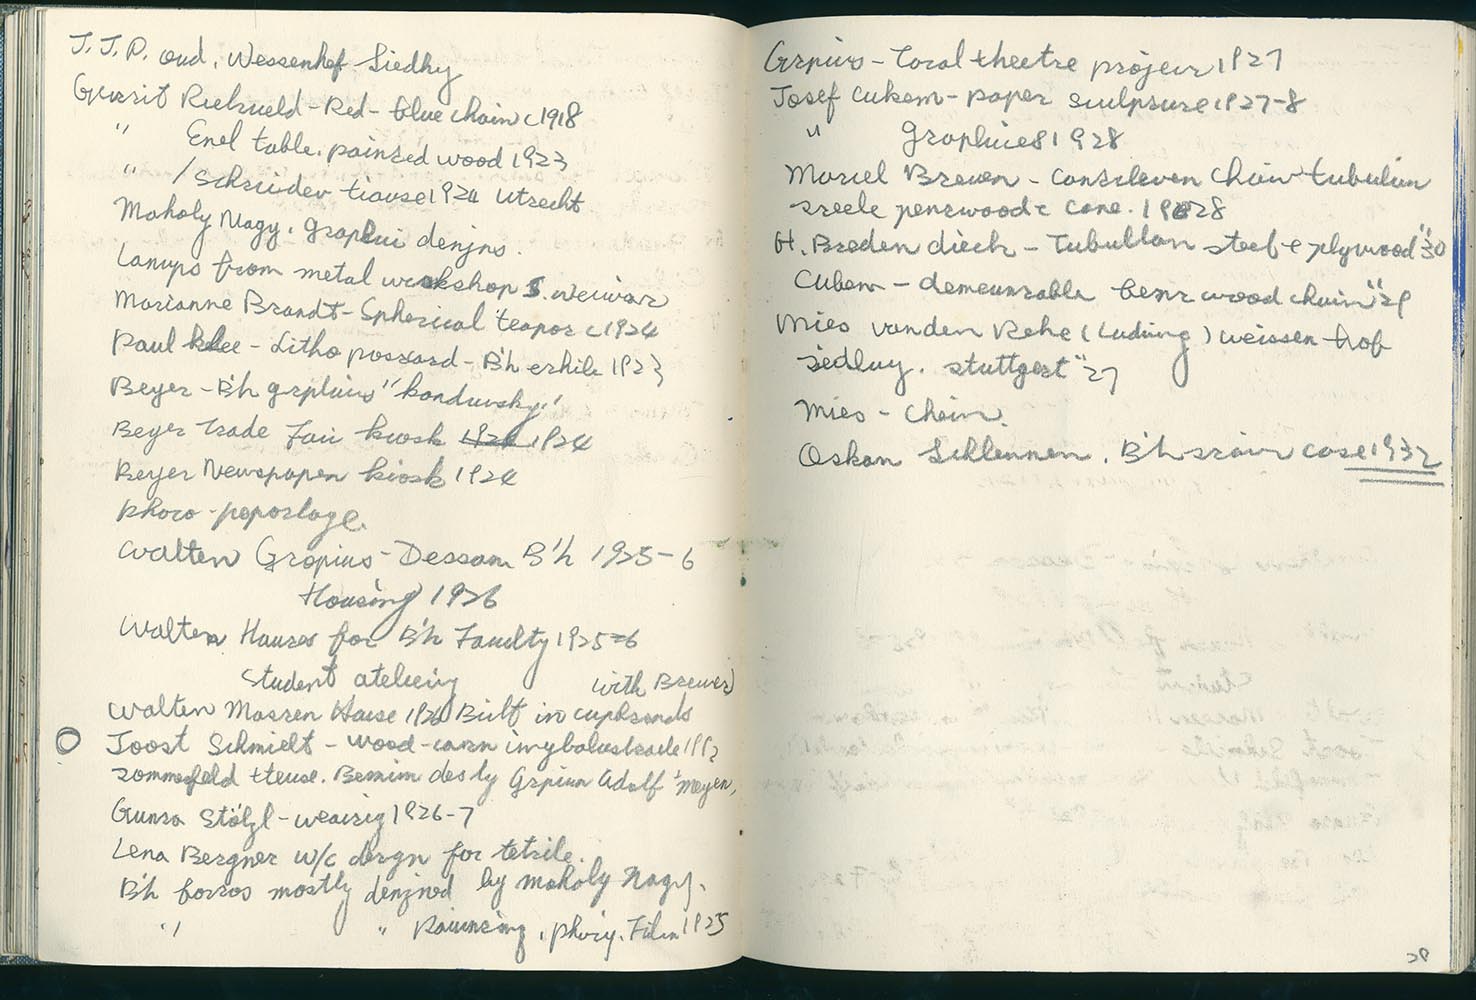 J.J.P. oud, Wessenhof Siedly
Gerrit Rietveld - Red - blue chair c1918
" Enel table. painted wood 1923
" / Schrieder House 1924 Utrecht
Moholy Nagy. Graphic designs.
Lamps from metal workshop S. Weiwar
Marianne Brandt - Spherical teapot c1924
Paul Klee - Litho postcard - B'h exhile 1923
Beyer - B'h graphics "kandinsky"
Beyer Trade Fair kiosk 1924 1924
Beyer Newspaper kiosk 1924
photo - reportage.
Walter Gropius - Dessau B'h 1925-6
Housing 1926
Walter Houses for B'h Faculty 1925=6
Student atelier with Brewer
Walter Masren House 1926 Built in cupboards
Joost Schmidt - wood-carvin balustrade
Sommerfeld House. Berlin des by Gropius Adolf + Meyer,
Gunta Stölzl - weaving 1926-7
Lena Bergner w/c design for textile.
B'h books mostly designed by Moholy Nagy.
" " Painting, photg. Film 1925
Gropius - Total theatre project 1927
Josef Cubers - paper sculpture 1927-8
" Graphics 1928
Marcel Brewer - Cantilever Chair tubular
steele bentwood & cane. 1928
H. Breden dieck - Tubullar steel & plywood "30
Cubers - demountable bent wood chair "29
Mies van den Rohe (Ludwig) weissen hof
siedlug. stuttgart "27
Mies - Chair.
Oskar Schlemmer. B'h stair case 1932
29